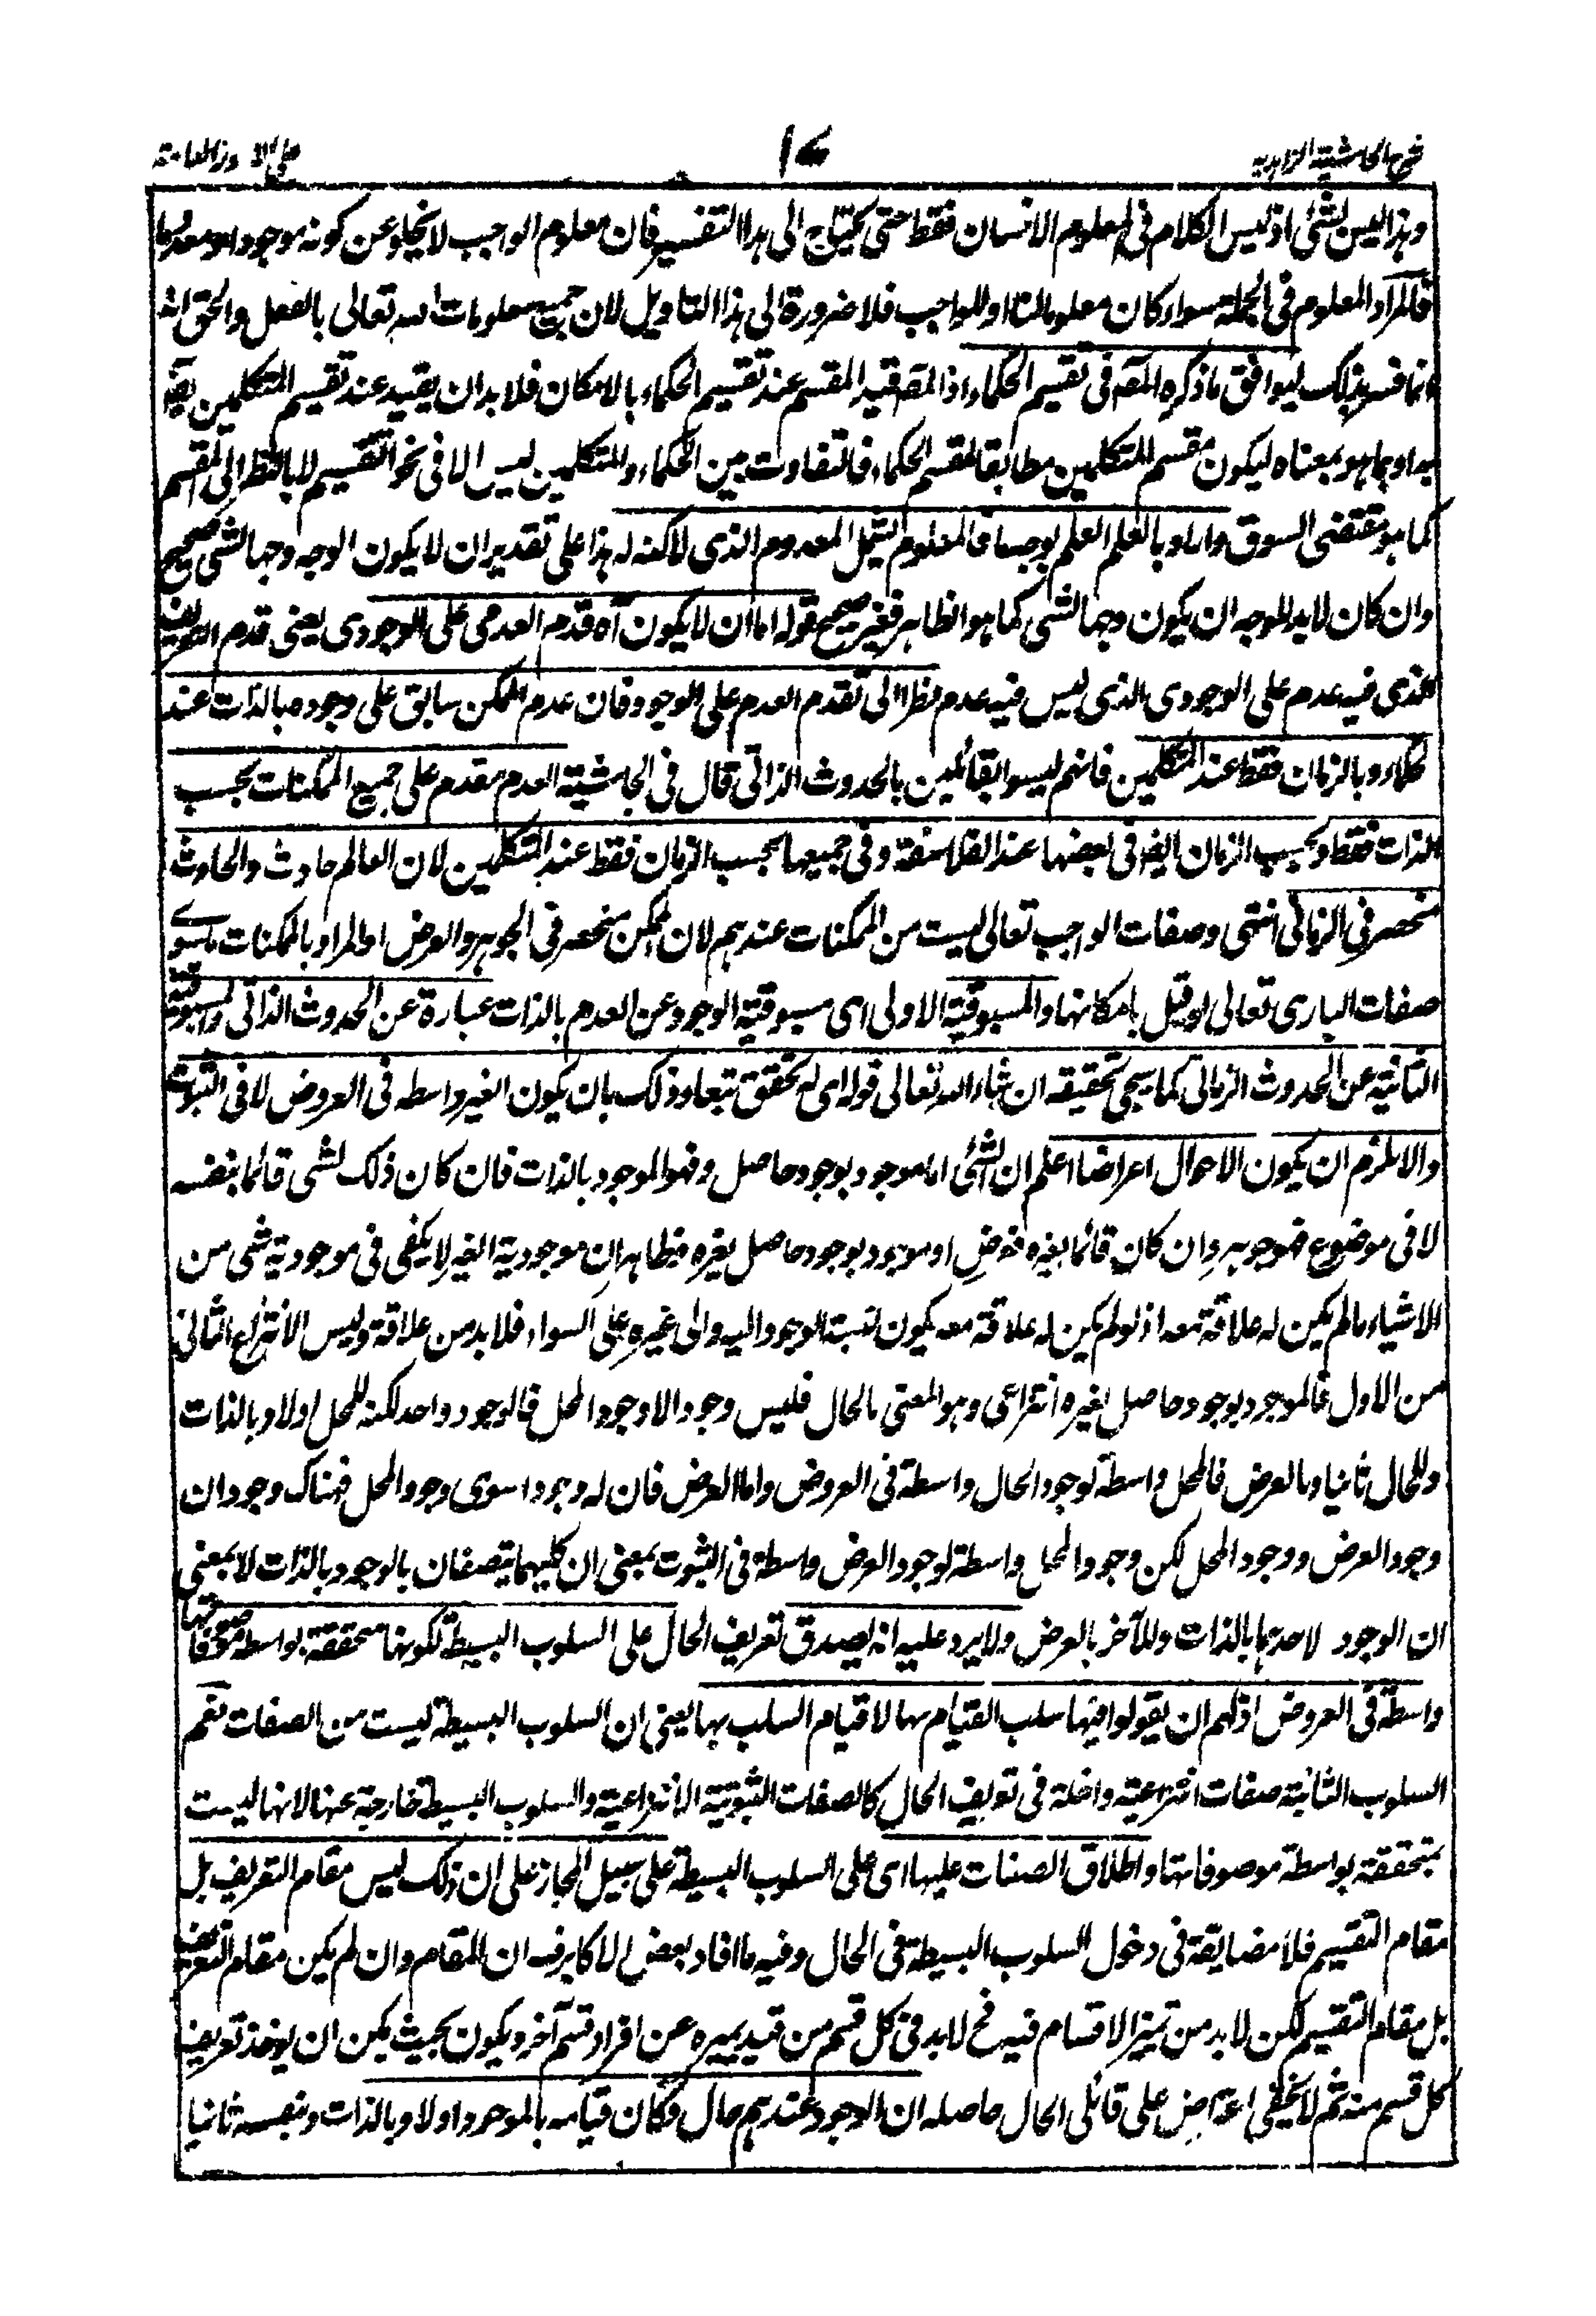 شرح الحاشية الزاهدية ١٧ على الامور العامة
وهذا ليس بشئ اذ ليس الكلام في المعلوم الانسان فقط حتى يحتاج الى هذا التفسير فان معلوم الواجب لا يخلو عن كونه موجودا او معدوما
فالمراد المعلوم في الجملة سواء كان معلوما لنا او للواجب فلا ضرورة الى هذا التاويل لان جميع معلومات الله تعالى بالفعل والحق انه
انما فسر بذلك ليوافق ما ذكره المصـ في تقسيم الحكماء اذ المصـ قيد المقسم عند تقسيم الحكماء بالامكان فلا بد ان يقيد عند تقسيم المتكلمين ايضا
بما هو بمعناه ليكون مقسم المتكلمين مطابقا لمقسم الحكماء فالتفاوت بين الحكماء والمتكلمين ليس الا في نحو التقسيم لا بالنظر الى المقسم
كما هو مقتضى السوق واراد بالعلم العلم بوجه ما فالمعلوم يشمل المعدوم الذي لا كنه له هذا على تقدير ان لا يكون الوجه وجها لشئ صحيح
وان كان لا بد للوجه ان يكون وجها لشئ كما هو الظاهر فغير صحيح قوله اما ان لا يكون آه قدم العدمي على الوجودي يعني قدم التعريف
الذي فيه عدم على الوجودي الذي ليس فيه عدم نظرا الى تقدم العدم على الوجود فان عدم الممكن سابق على وجوده بالذات عند
الحكماء وبالزمان فقط عند المتكلمين فانهم ليسوا بقائلين بالحدوث الذاتي قال في الحاشية العدم مقدم على جميع الممكنات بحسب
الذات فقط وبحسب الزمان ايضا في بعضها عند الفلاسفة وفي جميعها بحسب الزمان فقط عند المتكلمين لان العالم حادث والحادث
منحصر في الزماني انتهى وصفات الواجب تعالى ليست من الممكنات عندهم لان الممكن منحصر في الجوهر والعرض او المراد بالممكنات ما سوى
صفات الباري تعالى لو قيل بامكانها والمسبوقية الاولى اى مسبوقية الوجود عن العدم بالذات عبارة عن الحدوث الذاتي والمسبوقية
الثانية عن الحدوث الزماني كما سيجي تحقيقه ان شاء الله تعالى قوله اى له تحقق تبعا وذلك بان يكون الغير واسطه في العروض لا في الثبوت
والا لزم ان يكون الاحوال اعراضا اعلم ان الشئ اما موجود بوجود حاصل وهو الموجود بالذات فان كان ذلك لشئ قائما بنفسه
لا في موضوع فهو جوهر وان كان قائما بغيره فعرض او موجود بوجود حاصل بغيره فظاهر ان موجودية الغير لا يكفي في موجودية شئ من
الاشياء ما لم يكن له علاقة معه اذ لو لم يكن له علاقة معه يكون نسبة الوجود اليه والى غيره على السواء فلا بد من علاقة وليس الا انتزاع الثاني
من الاول فالموجود بوجود حاصل بغيره انتزاعي وهو المعنى بالحال فليس وجود الا وجود المحل فالوجود واحد لكنه للمحل اولا وبالذات
وللحال ثانيا وبالعرض فالمحل واسطة لوجود الحال واسطة في العروض واما العرض فان له وجودا سوى وجود المحل فهناك وجودان
وجود العرض ووجود المحل لكن وجود المحل واسطة لوجود العرض واسطة في الثبوت بمعنى ان كليهما يتصفان بالوجود بالذات لا بمعنى
ان الوجود لاحدهما بالذات وللآخر بالعرض ولا يرد عليه انه يصدق تعريف الحال على السلوب البسيطة لكونها متحققة بواسطة موصوفاتها
واسطة في العروض اذ لهم ان يقولوا فيها سلب القيام بها لا قيام السلب بها يعني ان السلوب البسيطة ليست من الصفات نعم
السلوب الثانية صفات انتزاعية داخلة في تعريف الحال كالصفات الثبوتية الانتزاعية والسلوب البسيطة خارجة عنها لانها ليست
بمتحققة بواسطة موصوفاتها واطلاق الصفات عليها اى على السلوب البسيطة على سبيل المجاز على ان ذلك ليس مقام التعريف بل
مقام التقسيم فلا مضايقة في دخول السلوب البسيطة في الحال وفيه ما افاد بعض الاكابر ره ان المقام وان لم يكن مقام التعريف
بل مقام التقسيم لكن لا بد من تميز الاقسام فيه فح لا بد في كل قسم من قيد يميزه عن افراد قسم آخر ويكون بحيث يمكن ان يوخذ تعريف
كل قسم منه ثم لا يخفى اعتراض على قائلى الحال حاصله ان الوجود عندهم حال فكان قيامه بالموجود اولا وبالذات وبنفسه ثانيا